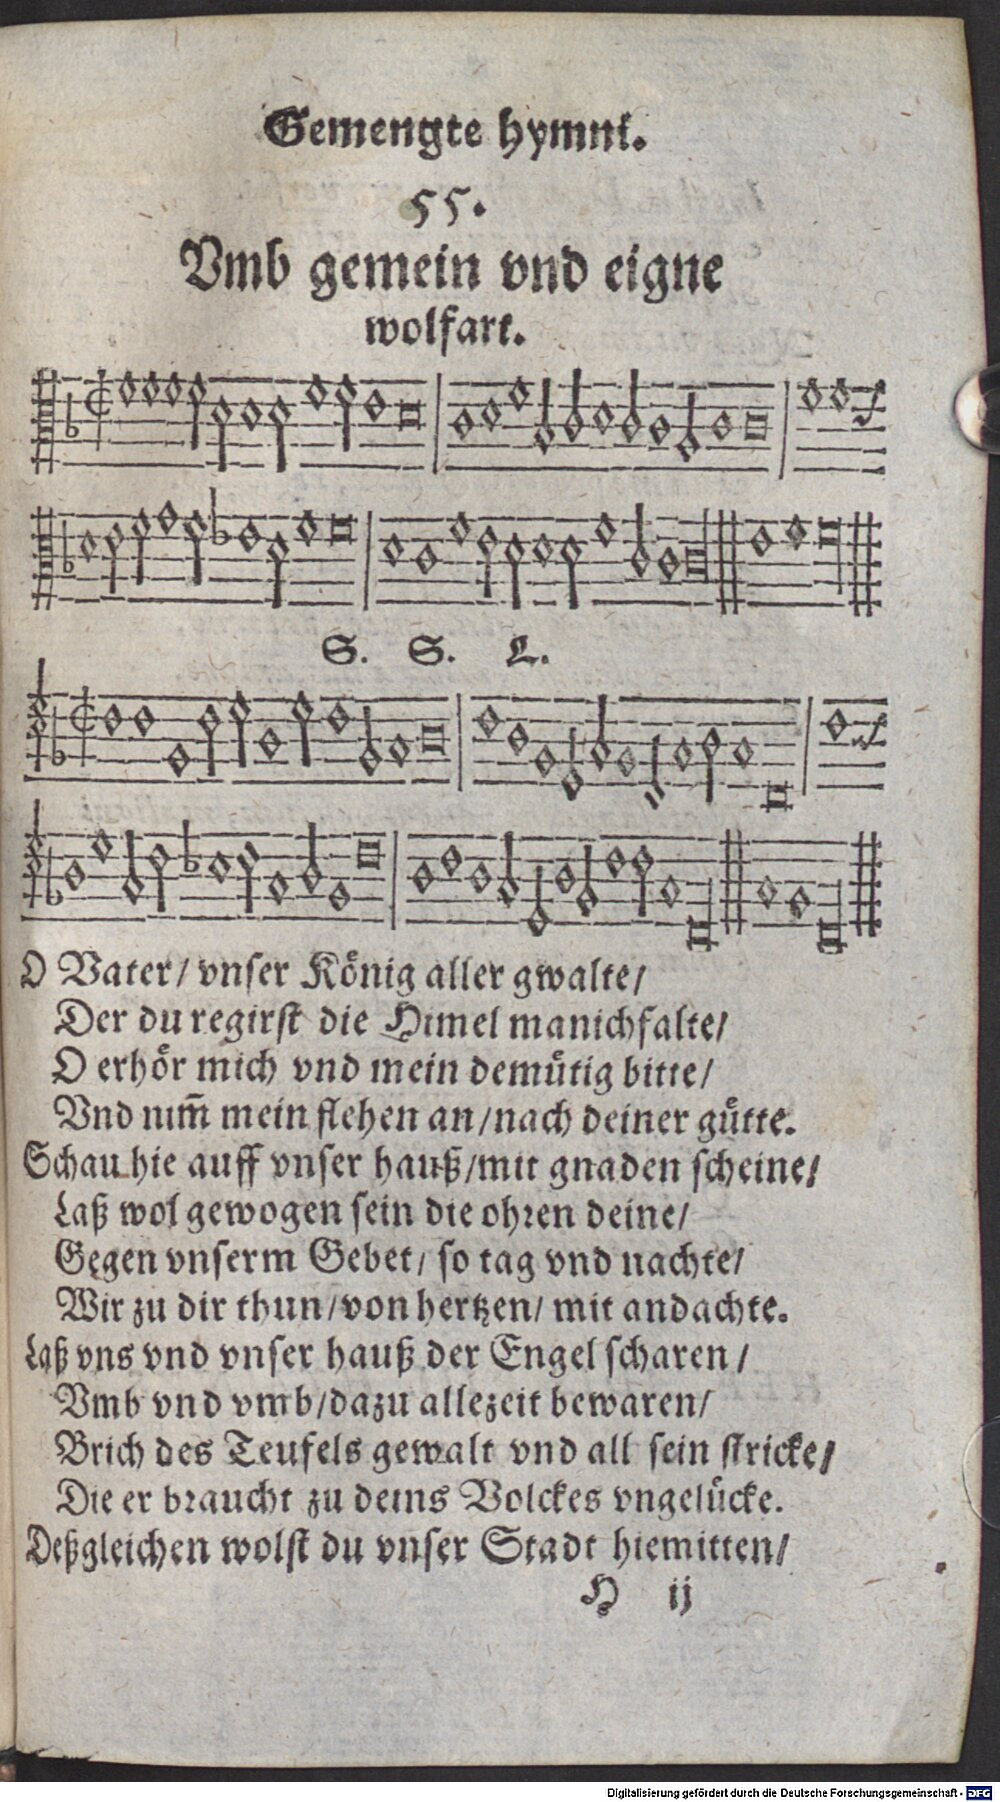 Gemengte hymni.
55.
Vmb gemein vnd eigne
wolfart.
S. S. L.
O Vater/ vnser König aller gwalte/
Der du regirst die Himel manichfalte/
O erhör mich vnd mein demütig bitte/
Vnd nim̃ mein flehen an/nach deiner gütte.
Schau hie auff vnser hauß/mit gnaden scheine/
Laß wol gewogen sein die ohren deine/
Gegen vnserm Gebet/ so tag vnd nachte/
Wir zu dir thun/von hertzen/ mit andachte.
Laß vns vnd vnser hauß der Engel scharen/
Vmb vnd vmb/dazu allezeit bewaren/
Brich des Teufels gewalt vnd all sein stricke/
Die er braucht zu deins Volckes vngelücke.
Deßgleichen wolst du vnser Stadt hiemitten/
H ij
Digitalisierung gefördert durch die Deutsche Forschungsgemeinschaft - DFG